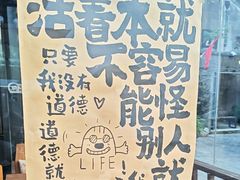 活着本就
不容易
能怪
别人
就
只要
我没有
道德
道德就
LIFE